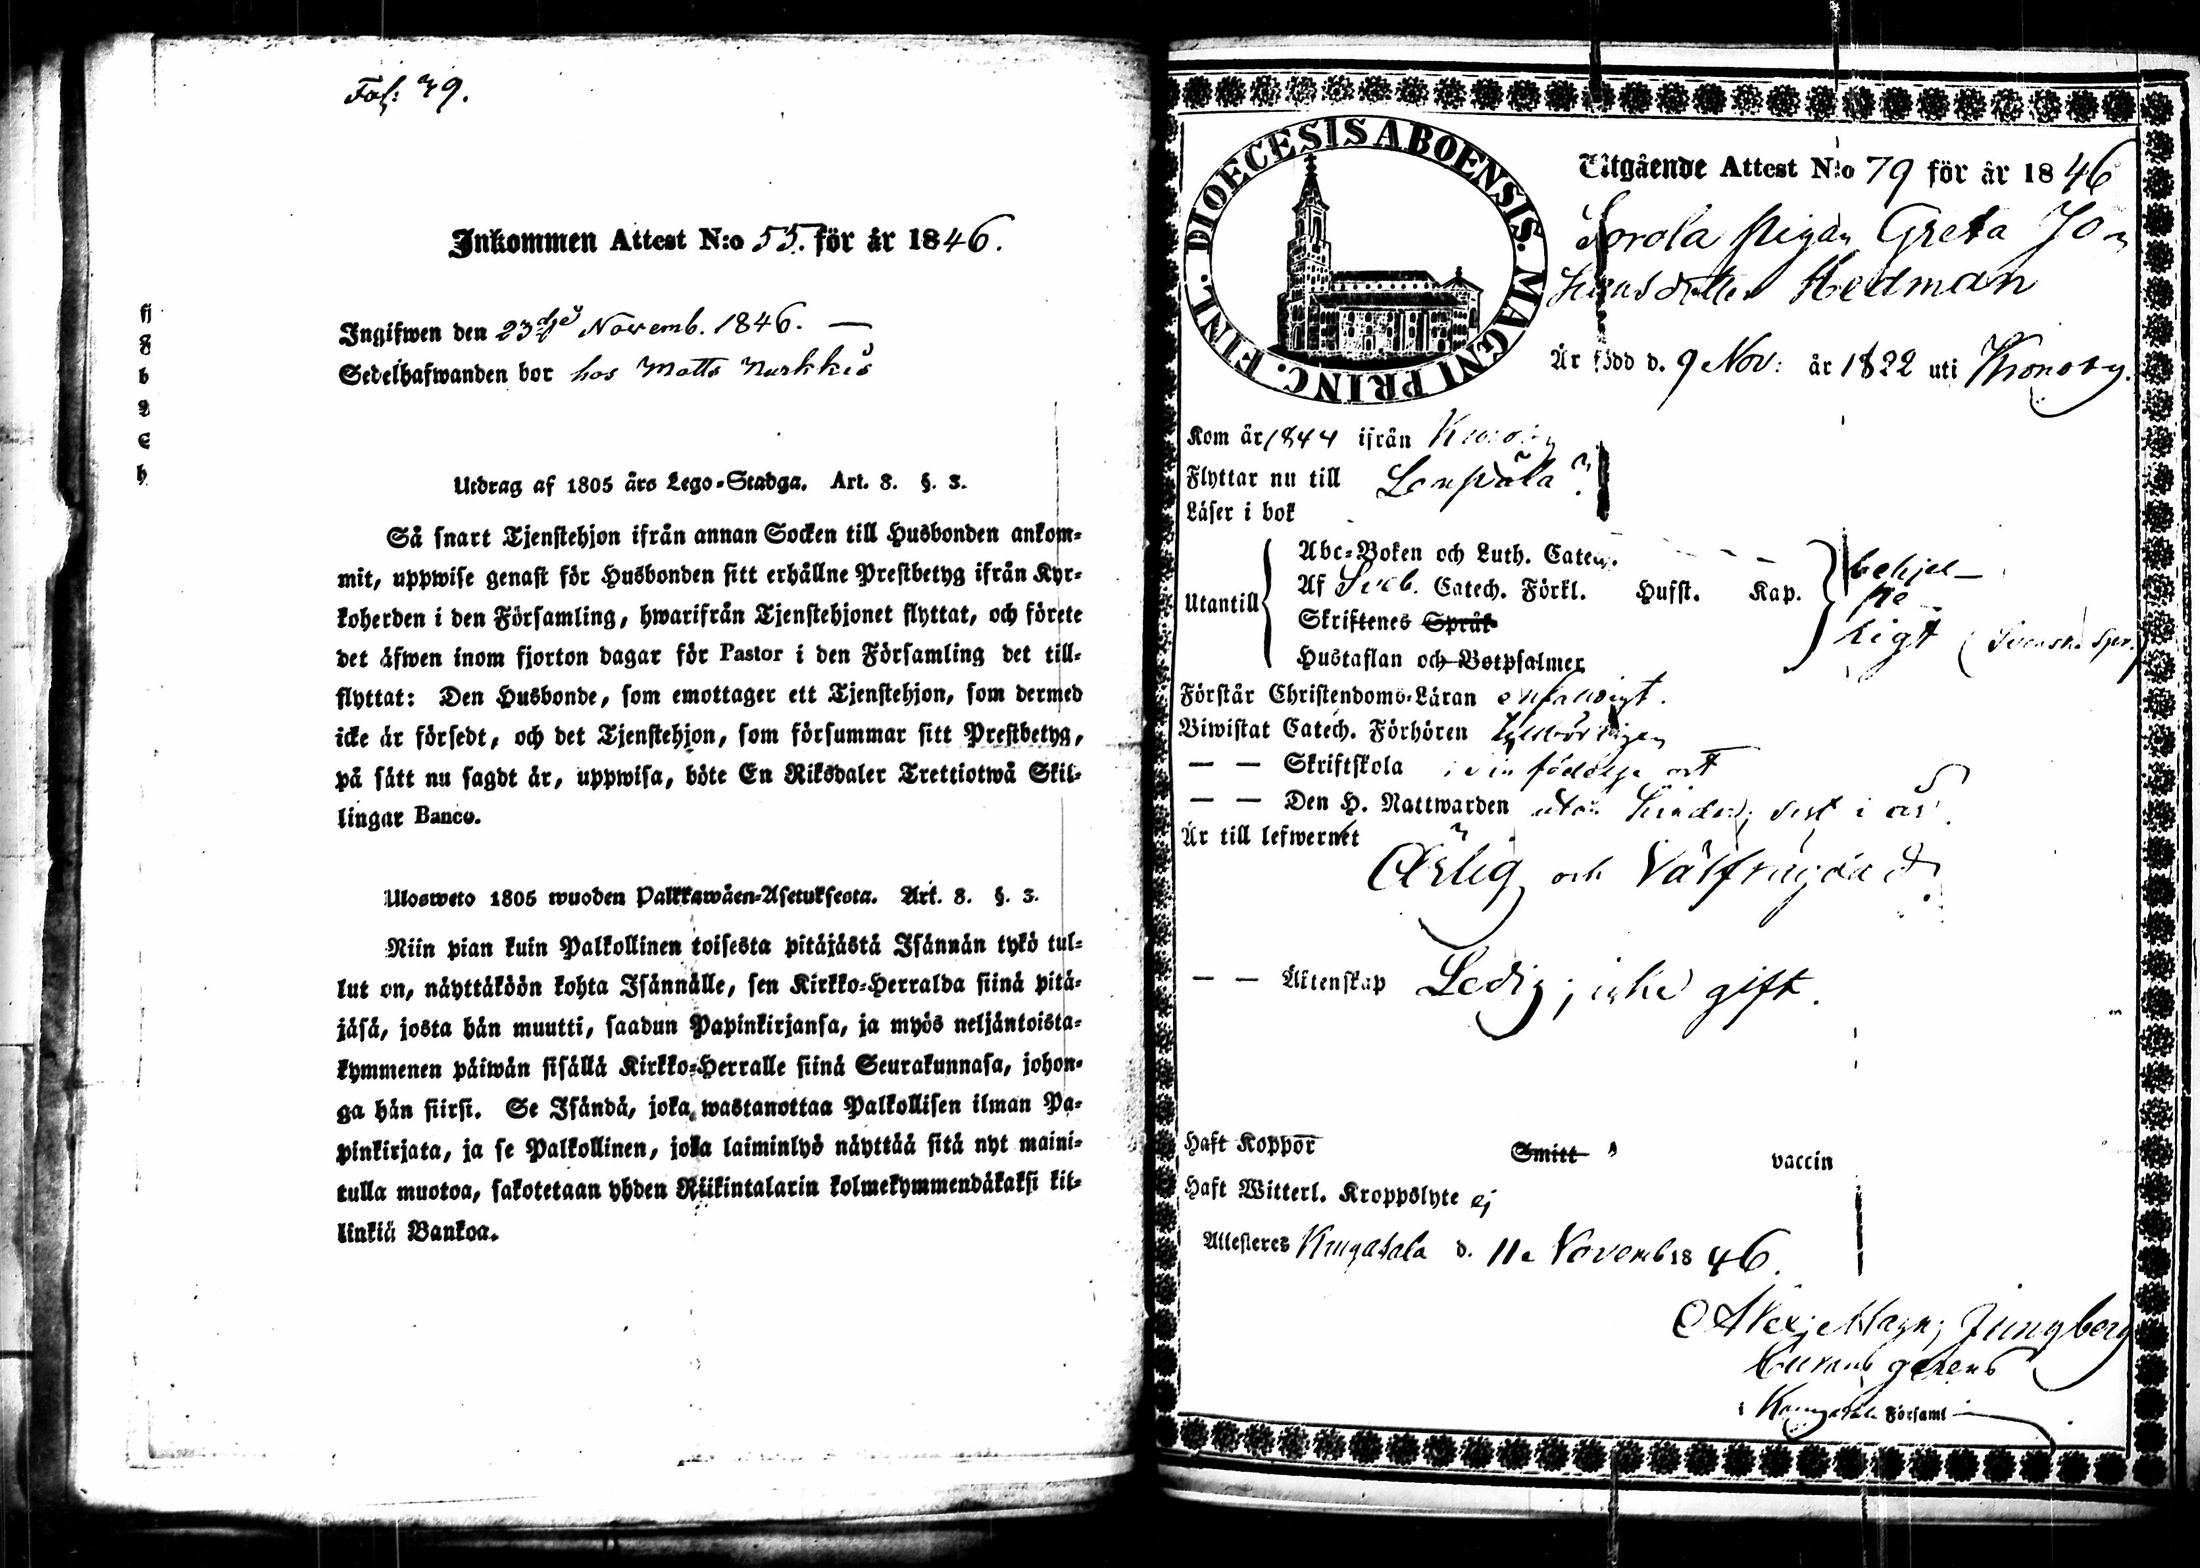 Fol: 79.
Inkommen Attest N:o 55. för år 1846.
Ingifwen den 23dje Novemb. 1846. —
Sedelhafwanden bor hos Matts
Utdrag af 1805 års Lego-Stadga. Art. 8. §. 3.
Så snart Tjenstehjon ifrån annan Socken till Husbonden ankom-
mit, uppwise genast för Husbonden sitt erhållne Prestbetyg ifrån Kyr-
koherden i den Församling, hwarifrån Tjenstehjonet flyttat, och förete
det äfwen inom fjorton dagar för Pastor i den Församling det till-
flyttat: Den Husbonde, som emottager ett Tjenstehjon, som dermed
icke är försedt, och det Tjenstehjon, som försummar sitt Prestbetyg,
på sätt nu sagdt är, uppwisa, böte En Riksdaler Trettiotwå Skil-
lingar Banco.
Ulosweto 1805 wuoden Palkkawäen-Asetuksesta. Art. 8. §. 3.
Niin pian kuin Palkollinen toisesta pitäjästä Isännän tykö tul-
lut on, näyttäköön kohta Isännälle, sen Kirkko-Herralda siinä pitä-
jäsä, josta hän muutti, saadun Papinkirjansa, ja myös neljäntoista-
kymmenen päiwän sisällä Kirkko-Herralle siinä Seurakunnasa, johon-
ga hän siirsi. Se Isändä, joka wastanottaa Palkollisen ilman Pa-
pinkirjata, ja se Palkollinen, joka laiminlyö näyttää sitä nyt maini-
tulla muotoa, sakotetaan yhden Riikintalarin kolmekymmendäkaksi kil-
linkiä Bankoa.
DIOECESIS ABOENSIS. MAGNI PRINC. FINL.
Utgående Attest N:o 79 för år 1846
Sorola pigan Greta Jo-
hansdotter Hedman
Är född d. 9 Nov: år 1822 uti Kronoby.
Kom år 1844 ifrån
Flyttar nu till Lempäla
Läser i bok
Utantill
Abc-Boken och Luth. Catech.
Af Sveb. Catech. Förkl. Husst. Kap.
Skriftenes Språk
Hustaflan och Botpsalmer
behjel-
pe-
ligt (Svensk
Förstår Christendoms-Läran enfaldigt.
Biwistat Catech. Förhören
— — Skriftskola i sin födelse ort
— — Den H. Nattwarden utan hinder, sist i år.
Är till lefwernet
Ärlig och Välfrägdad.
— — Äktenskap Ledig; icke gift.
Haft Koppor Smitt vaccin
Haft Witterl. Kroppslyte ej
Attesteres Kangasala d. 11e Novemb. 1846.
Alex: Magn: Ljungberg
Curam gerens
i Kangasala Församl